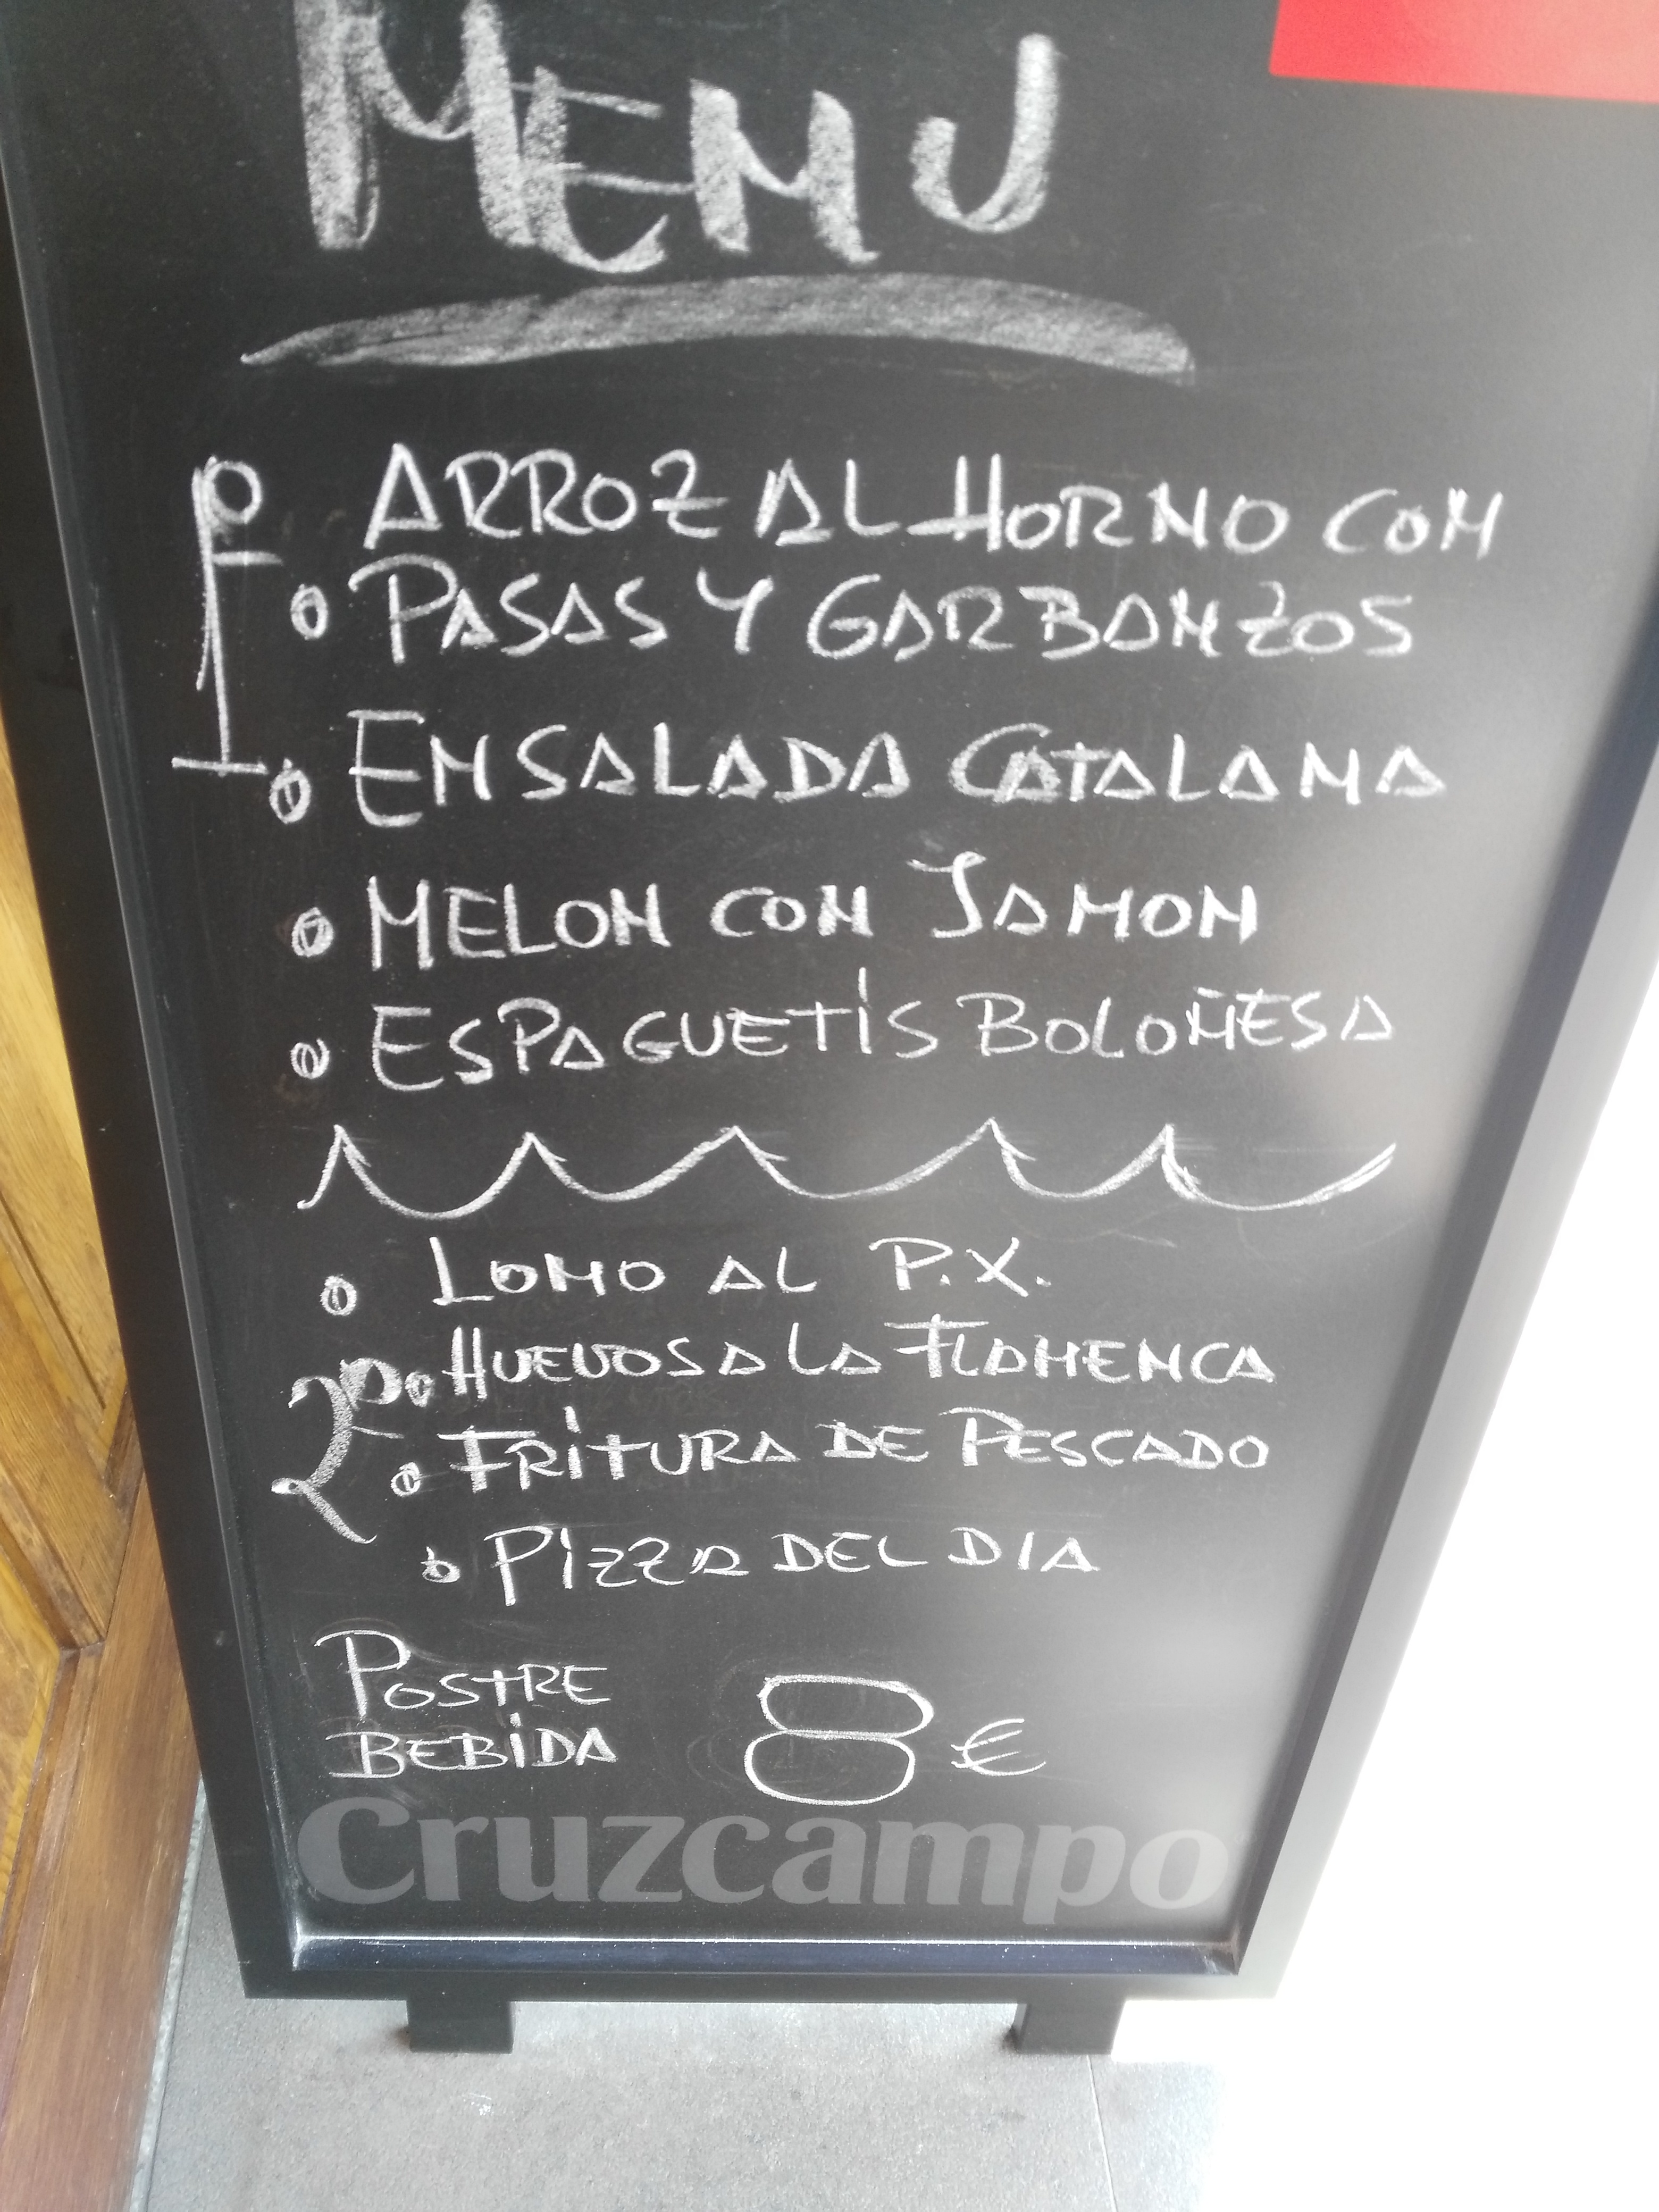 MENU
1º ARROZ AL HORNO CON
PASAS Y GARBANZOS
ENSALADA CATALANA
MELON CON JAMON
ESPAGUETIS BOLOÑESA
LOMO AL P.X.
2º HUEVOS A LA FLAMENCA
FRITURA DE PESCADO
PIZZA DEL DIA
POSTRE
BEBIDA 8€
Cruzcampo